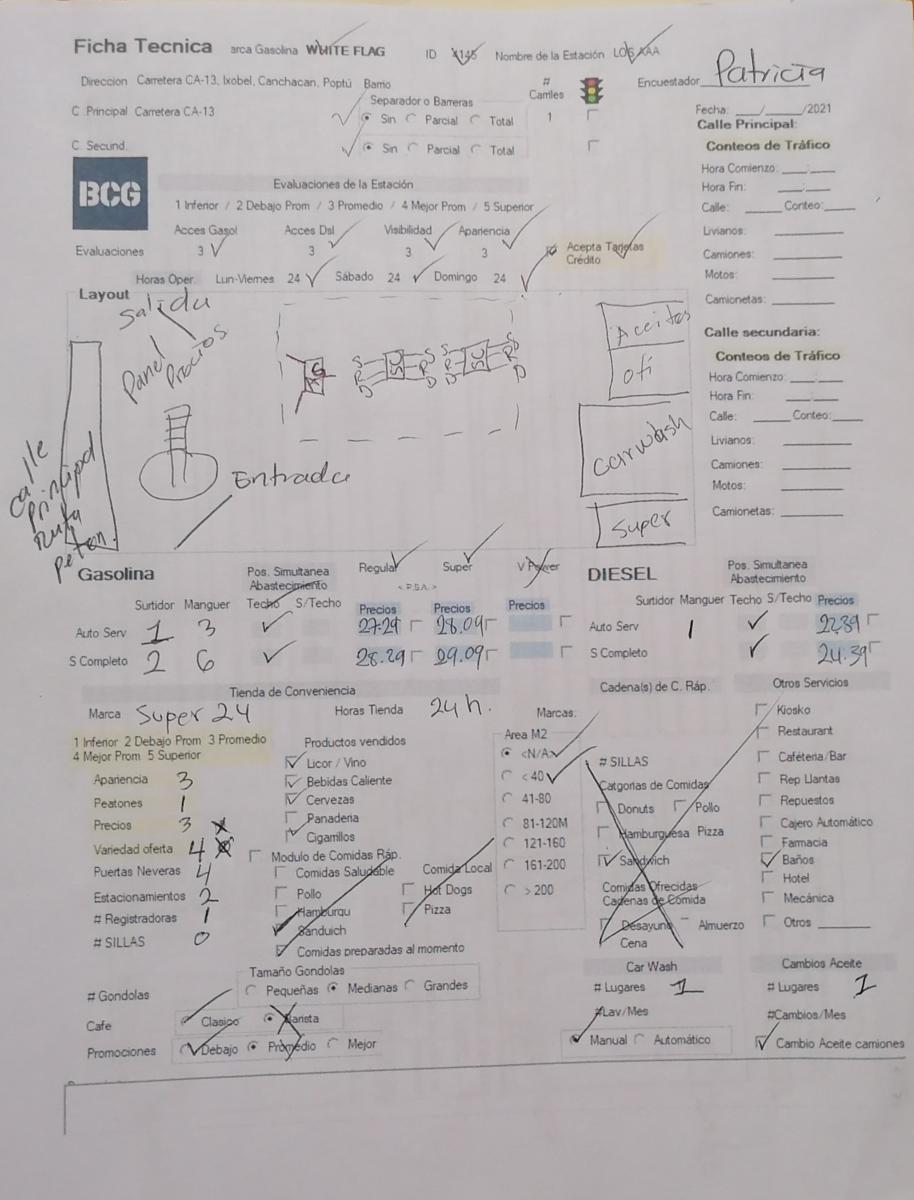 Ficha Tecnica arca Gasolina WHITE FLAG ID X145 Nombre de la Estación LOS AAA
Encuestador Patricia
Direccion Carretera CA-13, Ixobel, Canchacan, Poptú Barrio
# Carriles
C. Principal Carretera CA-13
Separador o Barreras
Sin Parcial Total 1
Fecha: ___/___/2021
C. Secund.
Sin Parcial Total
BCG
Evaluaciones de la Estación
1 Inferior / 2 Debajo Prom / 3 Promedio / 4 Mejor Prom / 5 Superior
Acces Gasol Acces Dsl Visibilidad Apariencia
Evaluaciones 3 3 3 3
Acepta Tarjetas Crédito
Horas Oper. Lun-Viernes 24 Sábado 24 Domingo 24
Calle Principal:
Conteos de Tráfico
Hora Comienzo: ___:___
Hora Fin: ___:___
Calle: ___ Conteo: ___
Livianos: ___
Camiones: ___
Motos: ___
Camionetas: ___
Calle secundaria:
Conteos de Tráfico
Hora Comienzo: ___:___
Hora Fin: ___:___
Calle: ___ Conteo: ___
Livianos: ___
Camiones: ___
Motos: ___
Camionetas: ___
Layout
Salida
Panel Precios
Calle Principal Ruta Peten.
Entrada
A G
S R D SC S R D
S R D SC S R D
Aceites
Ofi
Carwash
Super
Gasolina
Pos. Simultanea Abastecimiento
Regular Super V Power
< P.S.A. >
Surtidor Manguer Techo S/Techo Precios Precios Precios
Auto Serv 1 3 27.29 28.09
S Completo 2 6 28.29 29.09
DIESEL
Pos. Simultanea Abastecimiento
Surtidor Manguer Techo S/Techo Precios
Auto Serv 1 22.39
S Completo 24.39
Tienda de Conveniencia
Marca Super 24 Horas Tienda 24 h.
1 Inferior 2 Debajo Prom 3 Promedio
4 Mejor Prom 5 Superior
Apariencia 3
Peatones 1
Precios 3
Variedad oferta 4
Puertas Neveras 4
Estacionamientos 2
# Registradoras 1
# SILLAS 0
Productos vendidos
Licor / Vino
Bebidas Caliente
Cervezas
Panaderia
Cigarrillos
Modulo de Comidas Ráp.
Comidas Saludable Comida Local
Pollo Hot Dogs
Hamburqu Pizza
Sanduich
Comidas preparadas al momento
Marcas:
Area M2
<N/A>
< 40
41-80
81-120M
121-160
161-200
> 200
Cadena(s) de C. Ráp.
# SILLAS
Catgorias de Comidas
Donuts Pollo
Hamburguesa Pizza
Sandwich
Comidas Ofrecidas
Cadenas de Comida
Desayuno Almuerzo
Cena
Otros Servicios
Kiosko
Restaurant
Caféteria/Bar
Rep Llantas
Repuestos
Cajero Automático
Farmacia
Baños
Hotel
Mecánica
Otros ___
# Gondolas
Tamaño Gondolas
Pequeñas Medianas Grandes
Cafe Clasico Barista
Promociones Debajo Promedio Mejor
Car Wash
# Lugares 1
#Lav/Mes
Manual Automático
Cambios Aceite
# Lugares 1
#Cambios/Mes
Cambio Aceite camiones